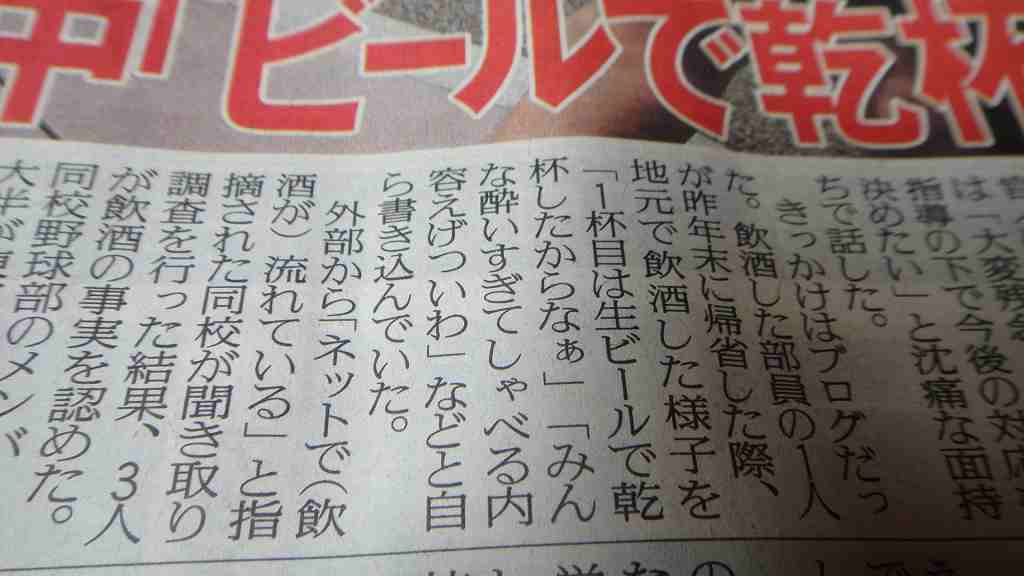 中「ビールで乾杯
は「大変残念
指導の下で今後の対応を
決めたい」と沈痛な面持
ちで話した。
きっかけはブログだっ
た。飲酒した部員の1人
が昨年末に帰省した際、
地元で飲酒した様子を
「1杯目は生ビールで乾
杯したからなぁ」「みん
な酔いすぎてしゃべる内
容えげつないわ」などと自
ら書き込んでいた。
外部から「ネットで(飲
酒が)流れている」と指
摘された同校が聞き取り
調査を行った結果、3人
が飲酒の事実を認めた。
同校野球部のメンバ
大半が